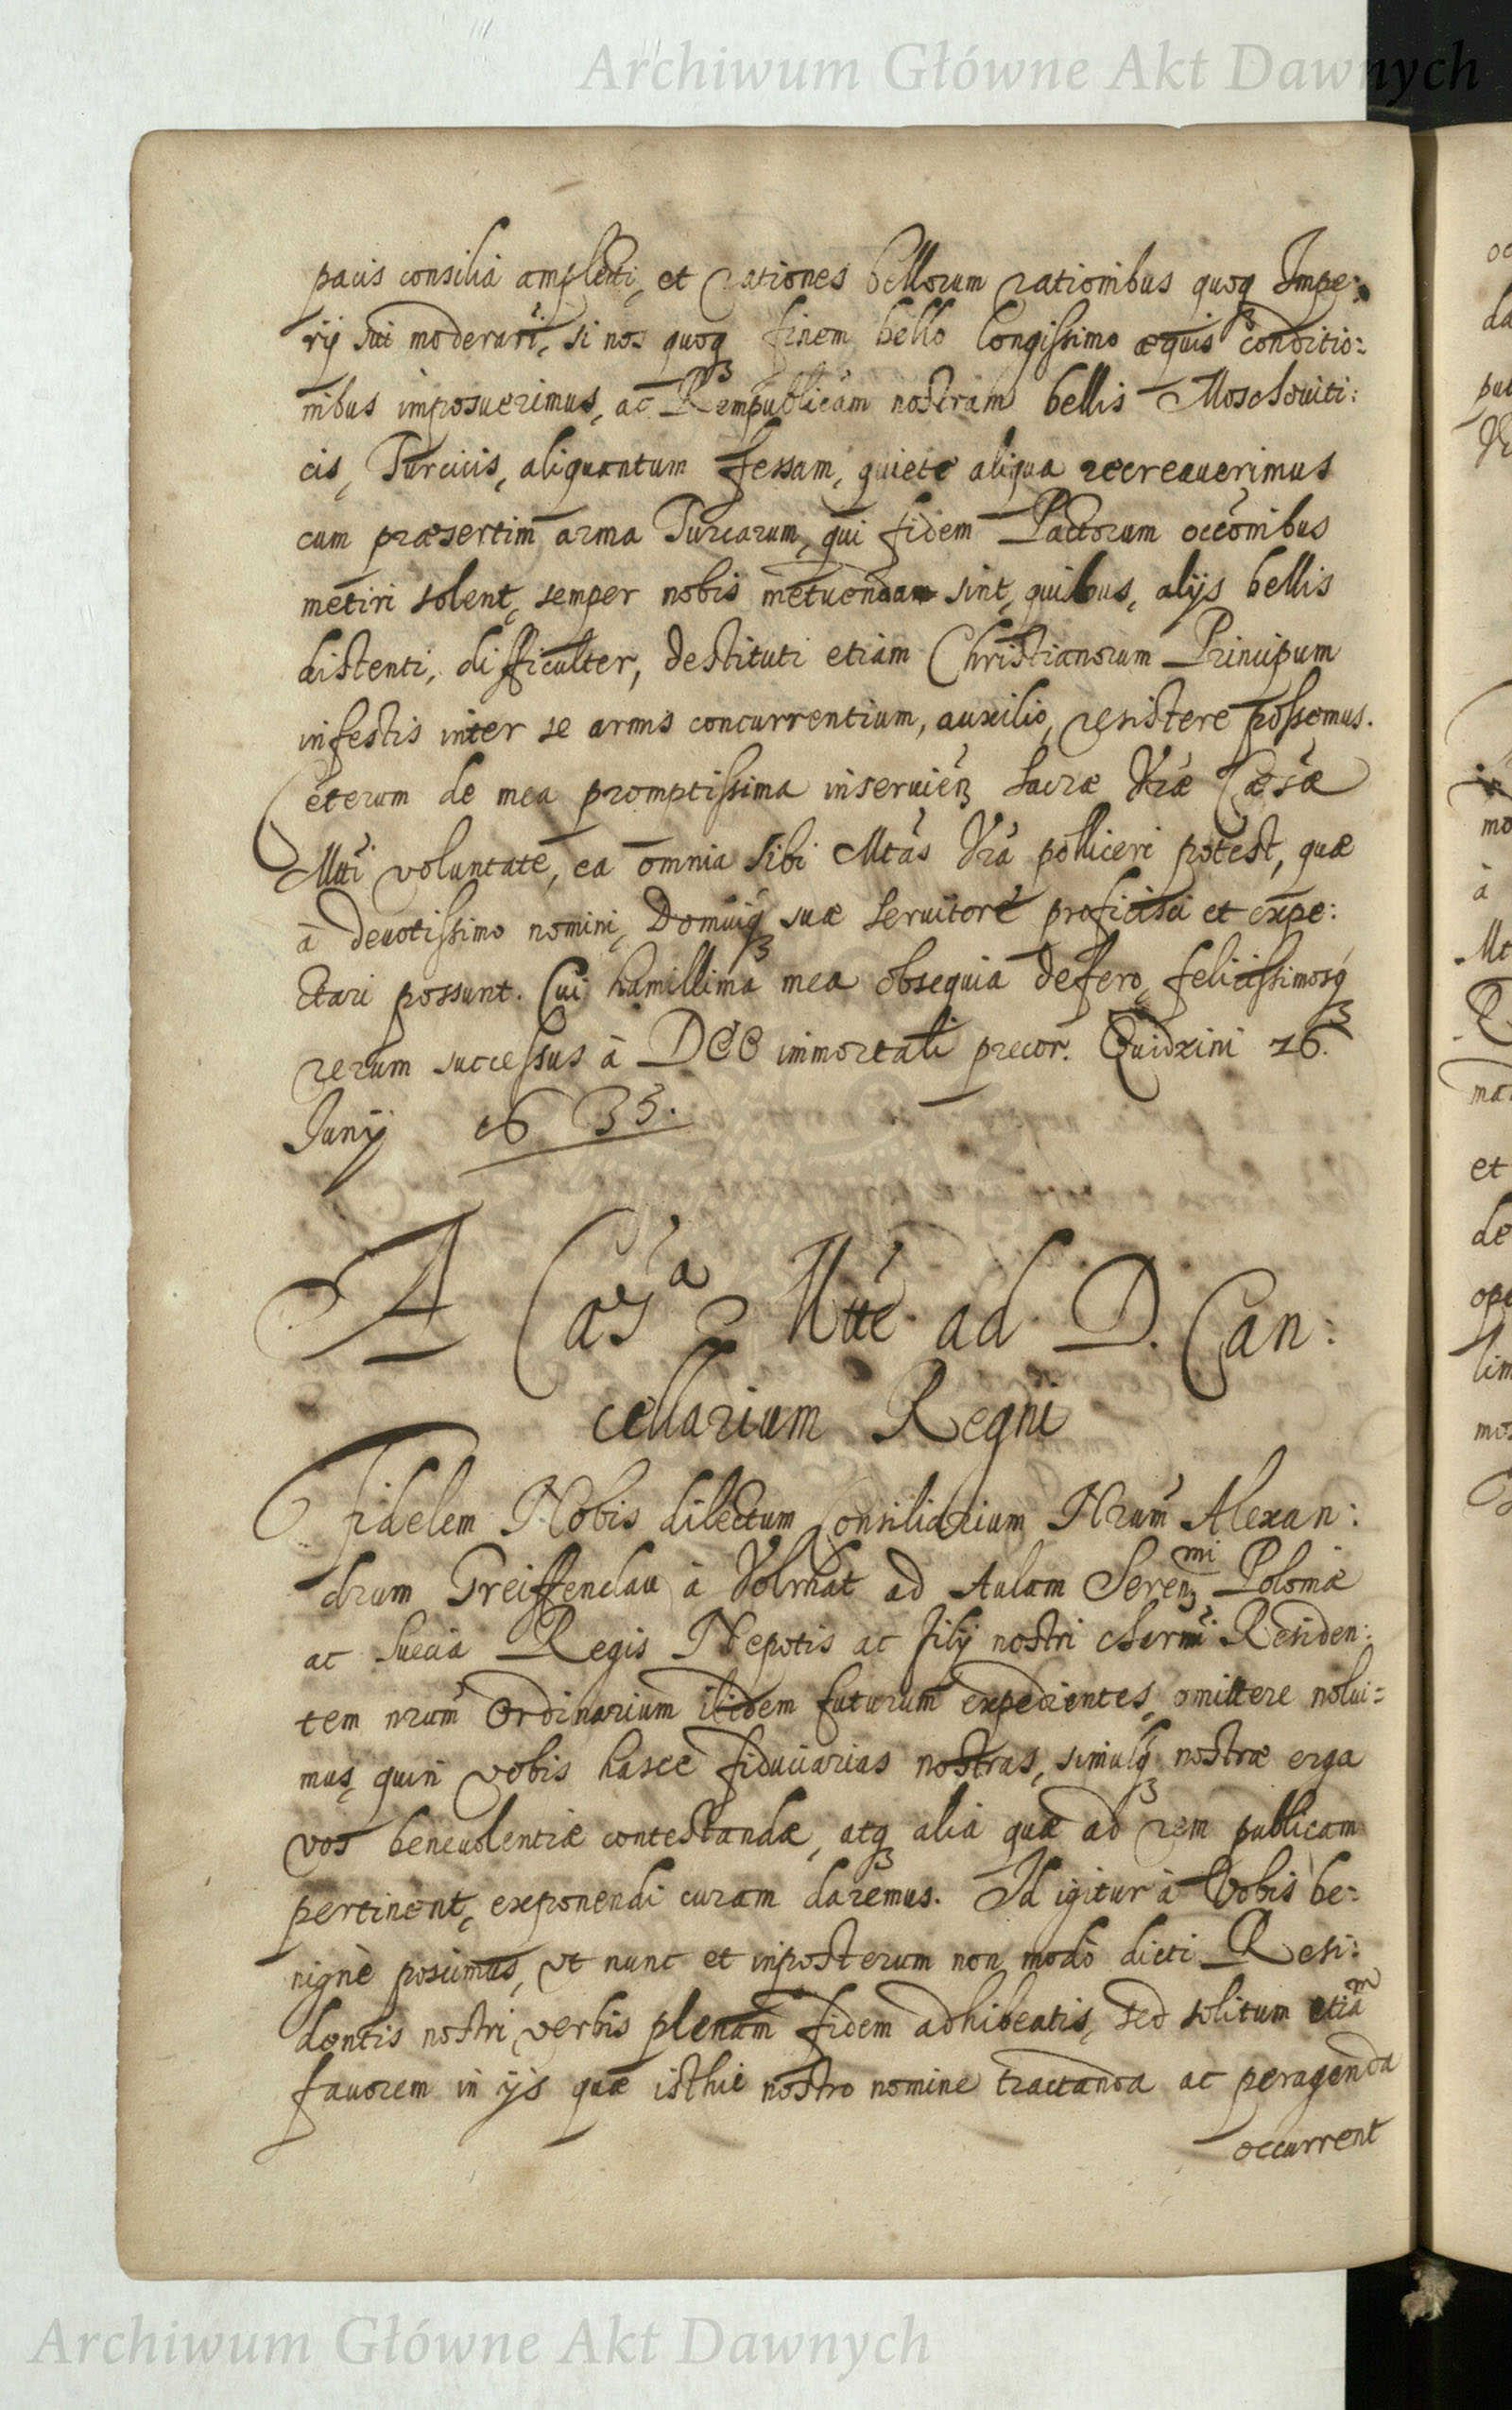 Archiwum Główne Akt Dawnych
pacis consilia amplecti, et rationes bellorum rationibus quoq Impe:
rij sui moderari, si nos quoq finem bello longissimo æquis conditio:
nibus imposuerimus, ac Rempublicam nostram bellis Moschouiti:
cis, Turcicis, aliquantum fessam, quiete aliqua recreauerimus
cum præsertim arma Turcarum, qui fidem Pactorum occōnibus
metiri solent, semper nobis metuenda sint, quibus, alijs bellis
distenti, difficulter, destituti etiam Christianorum Principum
infestis inter se armis concurrentium, auxilio, resistere possemus.
Ceterum de mea promptissima inseruień Sacræ Vræ Cæsæ
Mtti voluntate, ea omnia sibi Mtas Vra polliceri potest, quæ
à deuotissimo nomini, Domuiq suæ seruitore proficisci et expe:
ctari possunt. Cui humillima mea obsequia defero, felicissimosq
rerum successus à DEO immortali precor. Quidzini 26.
Junij 1635.
A Cæsa Mtte ad D. Can:
cellarium Regni
Fidelem Nobis dilectum Consiliarium Nrum Alexan:
drum Greiffenclau à Volrhat ad Aulam Serenmi Poloniæ
ac Sueciæ Regis Nepotis ac filij nostri charmi Residen:
tem nrum Ordinarium ibidem futurum expedientes, omittere nolui:
mus, quin vobis hasce fiduciarias nostras, simulq nostræ erga
vos beneuolentiæ contestandæ, atq alia quæ ad rem publicam
pertinent, exponendi curam daremus. Id igitur à Vobis be:
nignè poscimus, vt nunc et inposterum non modò dicti Resi:
dentis nostri verbis plenam fidem adhibeatis, sed solitum etiam
fauorem in ijs quæ isthic nostro nomine tractanda ac peragenda
occurrent
Archiwum Główne Akt Dawnych